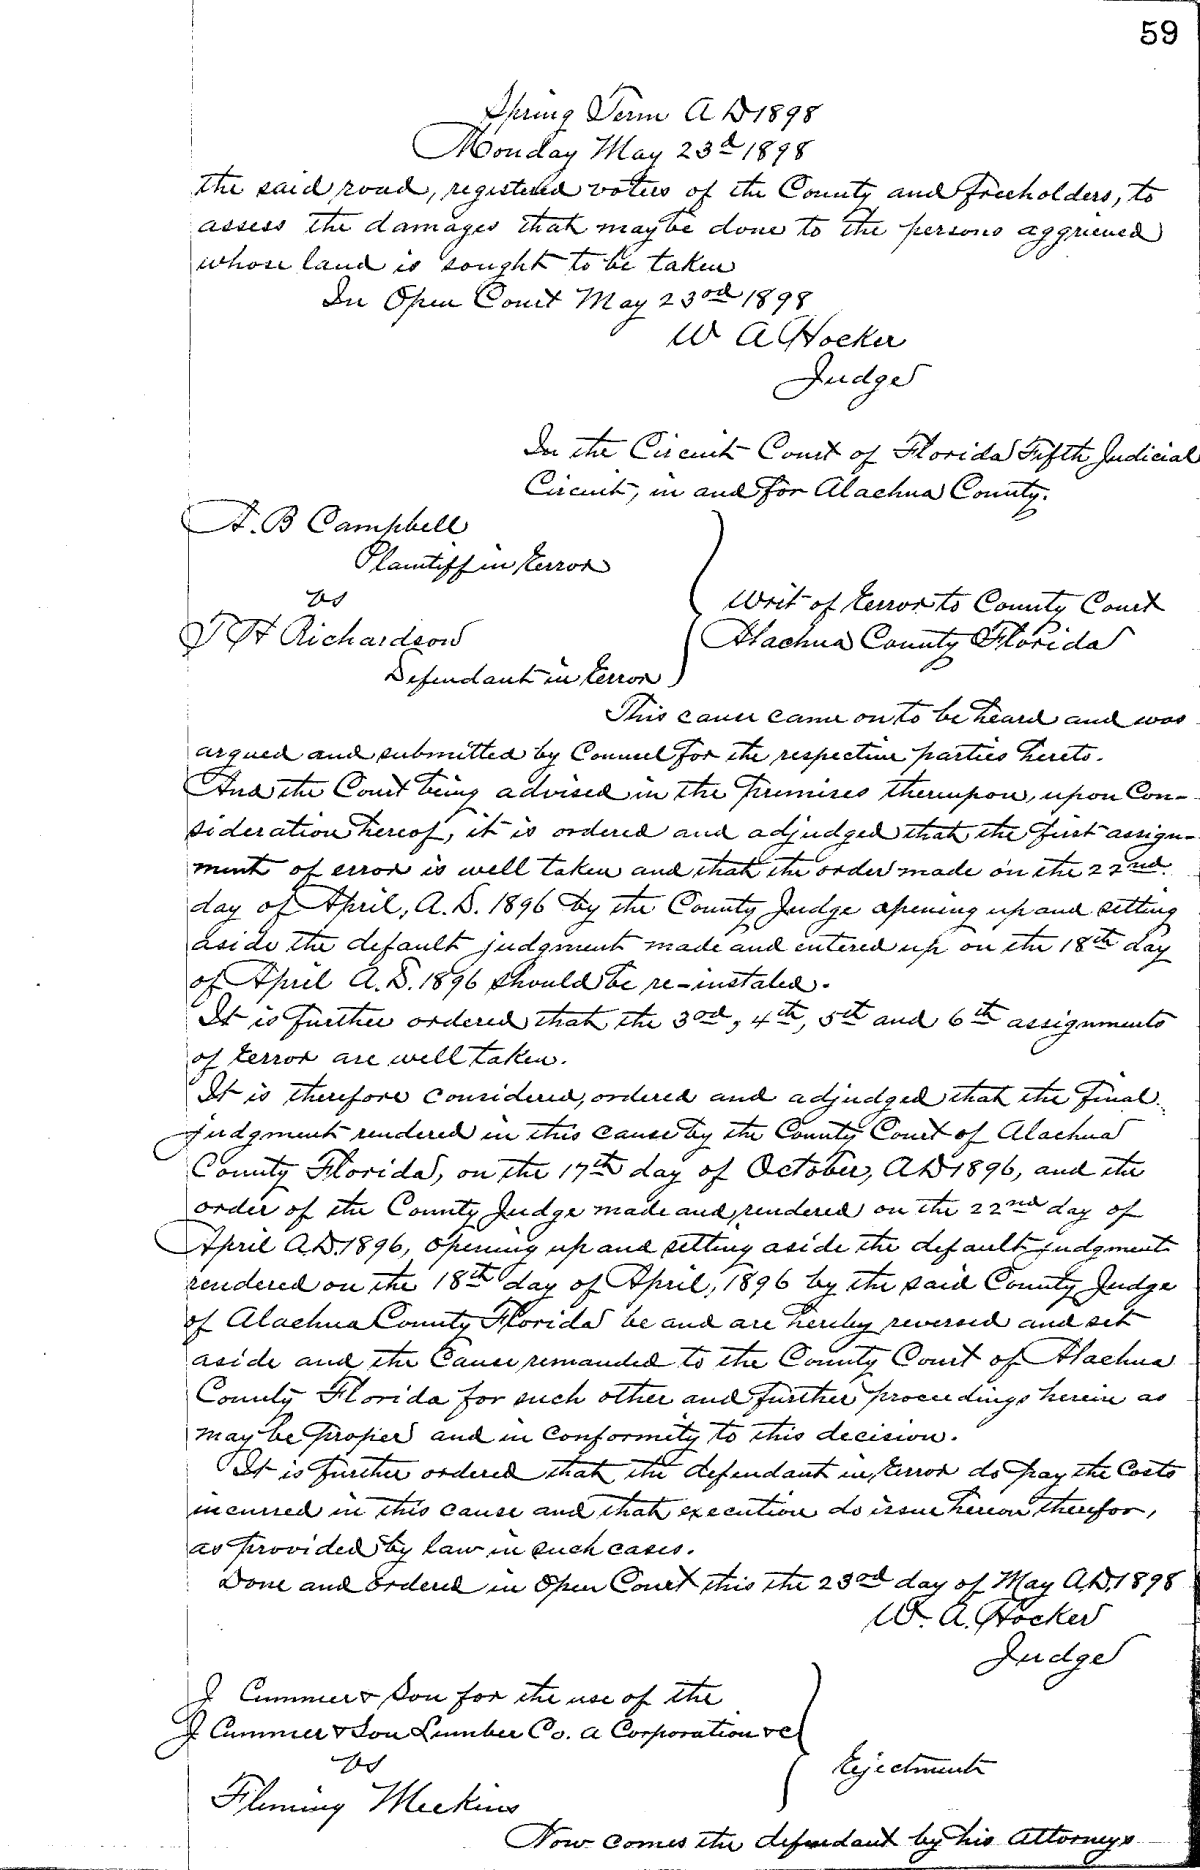 59
Spring Term A D 1898
Monday May 23d 1898
the said road, registered voters of the County and freeholders, to
assess the damages that may be done to the persons aggrieved
whose land is sought to be taken
In Open Court May 23rd 1898
W A Hocker
Judge
In the Circuit Court of Florida Fifth Judicial
Circuit, in and for Alachua County.
A. B Campbell
Plaintiff in Error
vs
Writ of Error to County Court
T H Richardson
Alachua County Florida
Defendant in Error
This cause came on to be heard and was
argued and submitted by Counsel for the respective parties hereto.
And the Court being advised in the premises thereupon, upon Con-
sideration hereof, it is ordered and adjudged that the first assign-
ment of error is well taken and that the order made on the 22nd
day of April, A.D. 1896 by the County Judge opening up and setting
aside the default judgment made and entered up on the 18th day
of April A.D. 1896 should be re-instated.
It is further ordered that the 3rd, 4th, 5th and 6th assignments
of Error are well taken.
It is therefore considered, ordered and adjudged that the final
judgment rendered in this cause by the County Court of Alachua
County Florida, on the 17th day of October, A D 1896, and the
order of the County Judge made and rendered on the 22nd day of
April A.D. 1896, opening up and setting aside the default judgment
rendered on the 18th day of April, 1896 by the said County Judge
of Alachua County Florida be and are hereby reversed and set
aside and the Cause remanded to the County Court of Alachua
County Florida for such other and further proceedings herein as
may be proper and in conformity to this decision.
It is further ordered that the defendant in Error do pay the Costs
incurred in this cause and that execution do issue hereon therefor,
as provided by law in such cases.
Done and ordered in Open Court this the 23rd day of May A.D. 1898
W. A. Hocker
Judge
J Cummer & Son for the use of the
J Cummer & Son Lumber Co. a Corporation &c
vs
Ejectment
Fleming Meekins
Now comes the defendant by his Attorneys